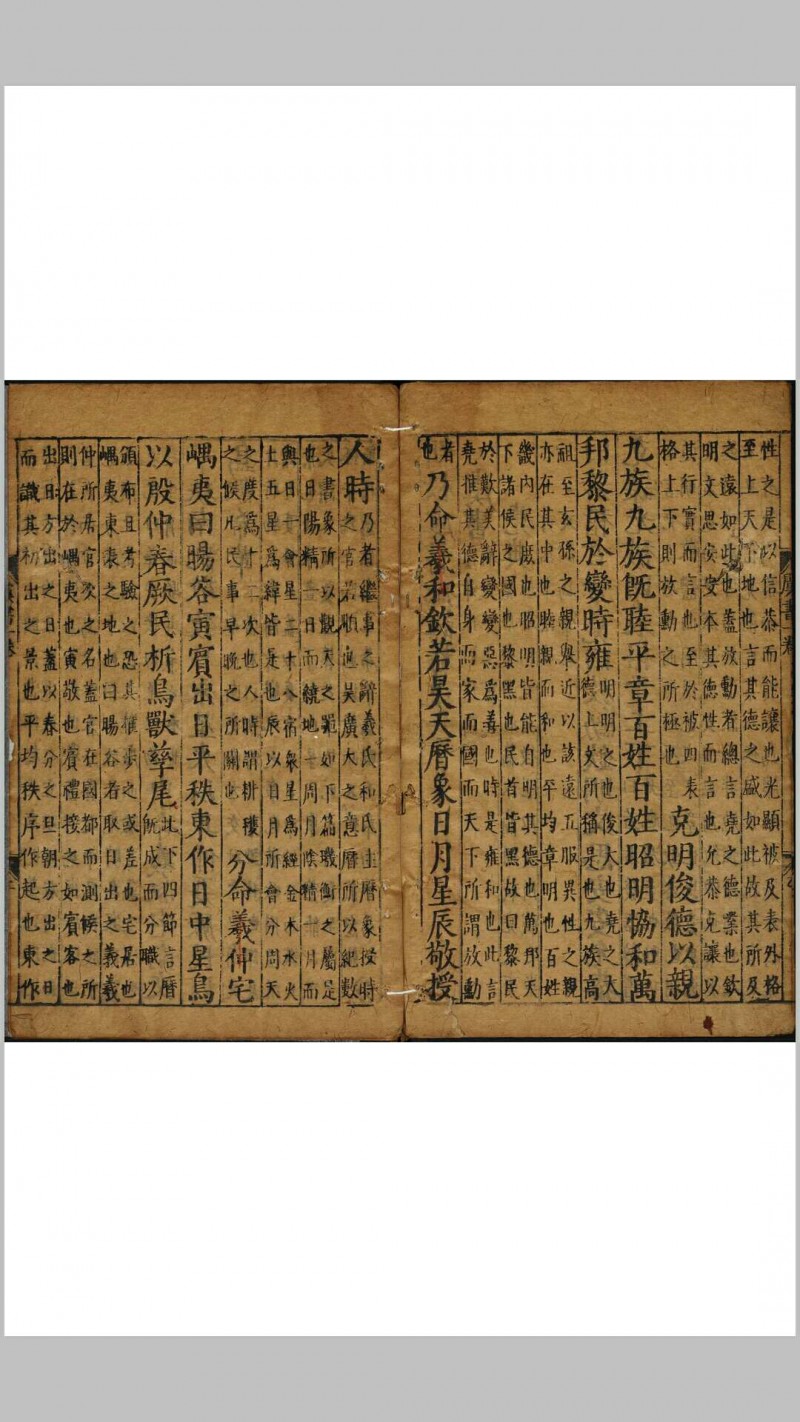 性之是以信恭而能讓也光顯被及表外格
至上天下地也言其德之盛如此故其所及
之遠如此也蓋放勳者總言堯之德業也欽
明文思安安本其德性而言也允恭克讓以
其行實而言也至於被四表
格上下則放勳之所極也
克明俊德以親
九族九族既睦平章百姓百姓昭明協和萬
邦黎民於變時雍
明明之也俊大也堯之大
德上文所稱是也九族高
祖至玄孫之親舉近以該遠五服異姓之親
亦在其中也睦親而和也平均章明也百姓
畿內民庶也昭明皆能自明其德也萬邦天
下諸侯之國也黎黑也民首皆黑故曰黎民
於歎美辭變變惡為善也時是雍和也此言
堯推其德自身而家而國而天下所謂放勳
者也
乃命羲和欽若昊天曆象日月星辰敬授
人時
乃者繼事之辭羲氏和氏主曆象授時
之官若順也昊廣大之意曆所以紀數
之書象所以觀天之器如下篇璣衡之屬是
也日陽精一日而繞地一周月陰精一月而
與日一會星二十八宿衆星為經金木水火
土五星為緯皆是也辰以日月所會分周天
之度為十二次也人時謂耕穫
之候凡民事早晚之所關也
分命羲仲宅
嵎夷曰暘谷寅賓出日平秩東作日中星鳥
以殷仲春厥民析鳥獸孳尾
此下四節言曆
既成而分職以
頒布且考驗之恐其推步之或差也宅居也
嵎夷東表之地也曰暘谷者取日出之義羲
仲所居官次之名蓋官在國都而測候之所
則在於嵎夷也寅敬也賓禮接之如賓客也
出日方出之日蓋以春分之旦朝方出之日
而識其初出之景也平均秩序作起也東作